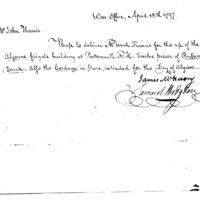 War Office, April 18th 1797
Mr John Harris.
Please to deliver Mr Jacob Treavis for the use of the
Algerine frigate building at Portsmouth, N. H. Twelve pieces of
Duck. Also the Cordage in store, intended for the Dey of Algiers.
James McHenry
Samuel Hodgdon